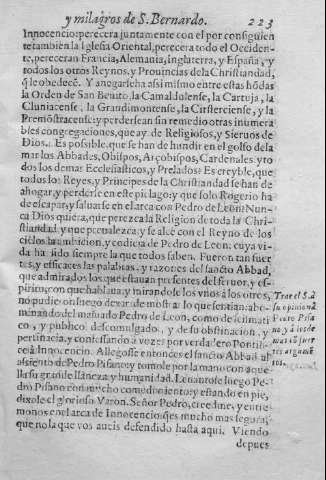 y milagros de S. Bernardo. 223
Innocencio: perecera juntamente con el por consiguien
te tambien la Iglesia Oriental, perecera todo el Occiden-
te, pereceran Francia, Alemania, inglaterra, y España, y
todos los otros Reynos, y Prouincias de la Christiandad,
q̃ le obedecẽ. Y anegarseha assi mismo entre estas hõdas
la Orden de San Benito, la Camaldulense, la Cartuja, la
Cluniacense, la Grandimontense, la Cisterciense, y la
Premõstracense: y perderse an sin remedio otras inumera
bles congregaciones, que ay de Religiosos, y Sieruos de
Dios. Es possible, que se han de hundir en el golfo de la
mar los Abbades, Obispos, Arçobispos, Cardenales, y to
dos los demas Ecclesiasticos, y Prelados? Es creyble, que
todos los Reyes, y Principes de la Christiandad se han de
ahogar, y perderse en este pielago: y que solo Rogerio ha
de escapar, y saluarse en el arca con Pedro de Leon? Nun
ca Dios quiera, que perezca la Religion de toda la Chri-
stiandad, y que preualezca, y se alce con el Reyno de los
cielos la ambicion, y codicia de Pedro de Leon: cuya vi-
da ha sido siempre la que todos saben. Fueron tan fuer
tes, y efficaces las palabras, y razones del sancto Abbad,
que admirados los que estauan presentes del feruor, y es-
piritu, con que hablaua, y mirandose los vnos a los otros,
no pudieron luego dexar de mostrar lo que sentian: abo-
minando del maluado Pedro de Leon, como de scismati
co, y publico descomulgado, y de su obstinacion, y
pertinacia, y confessando a vozes por verdadero Pontifi-
ce à Innocencio. Allegosse entonces el sancto Abbad al
assiento de Pedro Pisano: y tomole por la mano con aque
lla su grande llaneza, y humanidad. Leuantose luego Pe-
dro Pisano con mucho comedimiento: y estando en pie,
dixole el glorioso Varon. Señor Pedro, creedme, y entre
monos en el arca de Innocencio: q̃ es mucho mas segura,
que no la que vos aueis defendido hasta aqui. Viendo
depues
Trae el S. à
su opinion à
Pedro Pisa
no, y à